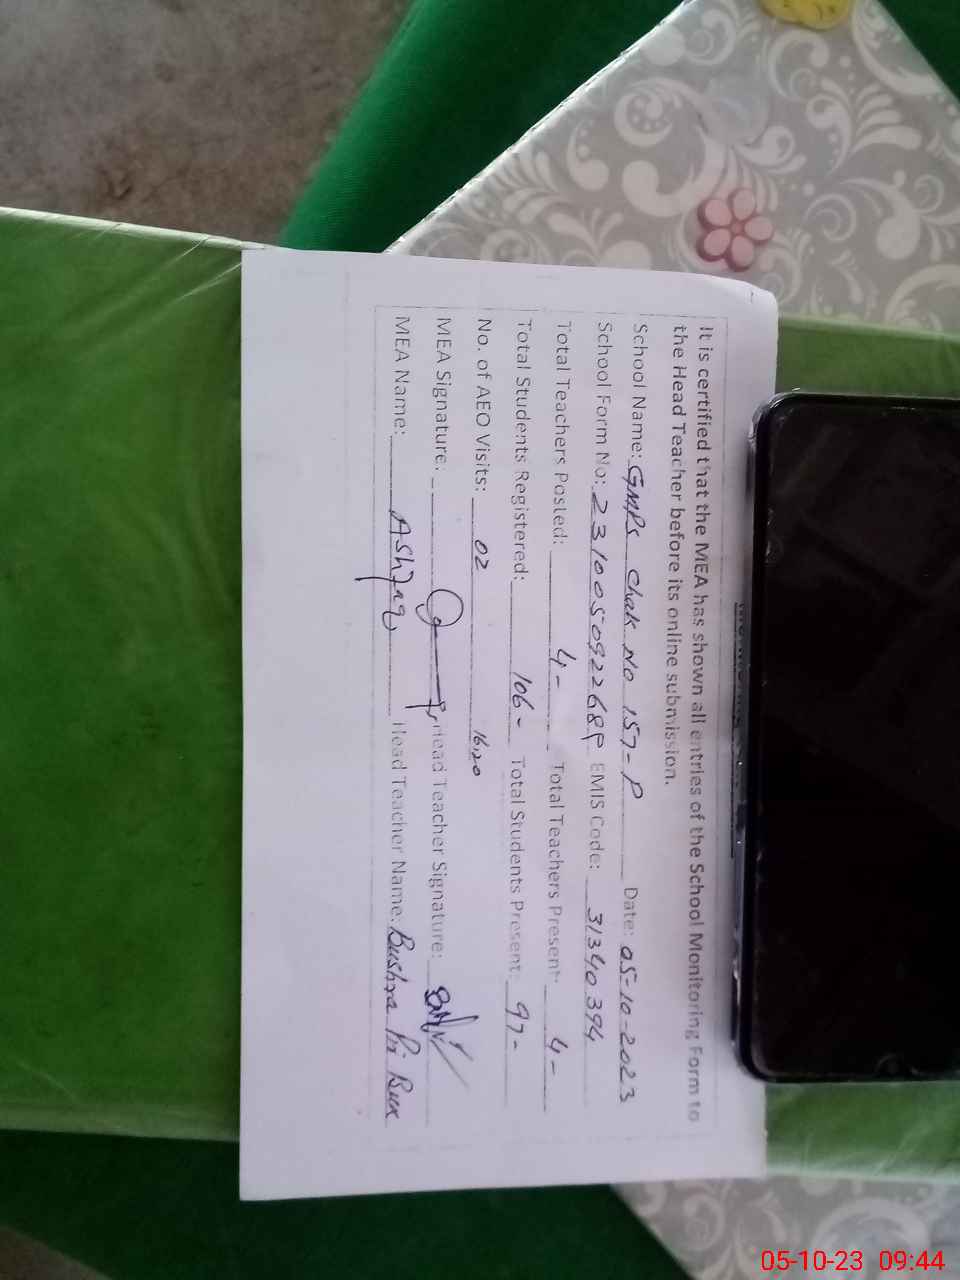 It is certified that the MEA has shown all entries of the School Monitoring Form to
the Head Teacher before its online submission.
School Name: GMPS Chak No 157-P Date: 05-10-2023
School Form No: EMIS Code: 31340394
Total Teachers Posted: 4- Total Teachers Present: 4-
Total Students Registered: 106- Total Students Present: 97-
No. of AEO Visits: 02 16,20
MEA Signature: Head Teacher Signature:
MEA Name: Ashfaq Head Teacher Name: Bushra
05-10-23 09:44